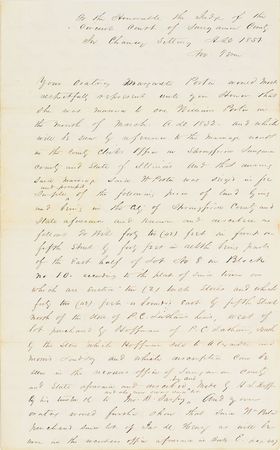 To the Honorable the Judge of the
Circuit Court of Sangamon County
In Chancery Sitting A.D. 1851
Your Oratrix Margaret Porter would most
respectfully represent unto your Honor that
she was married to one William Porter in
the month of March A.D. 1832. and which
will be seen by reference to the marriage record
in the county Clerks Office in Springfield Sangamon
county and State of Illinois And that during
said marriage said Wm Porter was seized in fee
and possessed
simple of the following piece of land lying
and being in the City of Springfield County and
State aforesaid and known and described as
follows To Wit forty two (42) feet in front on
fifth Street by forty feet in depth being parts
of the East half of Lot No 8 in Block
no 10. according to the plat of said town on
which are erected two (2) brick stores and which
forty two (42) feet is bounded East by fifth Street
north of the store of P.C. Latham heirs, west of
lot purchased by Hoffman of P.C. Latham, South
by the Store which Hoffman sold to
and which description can be
seen in the recorders office of Sangamon County
and State aforesaid and
by his
oratrix would further show that said Wm Porter
purchased said lot of as will be
seen in the recorders office aforesaid in